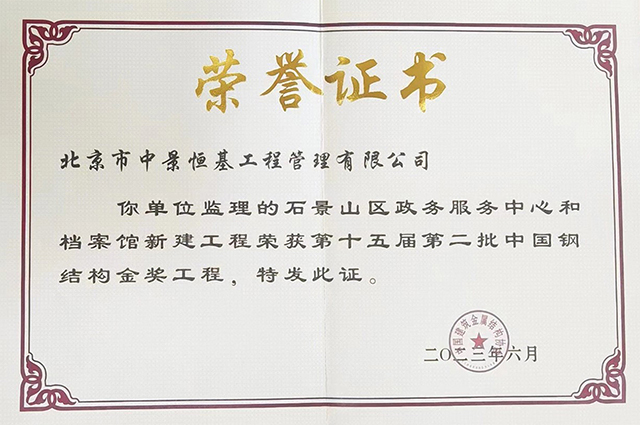 荣誉证书
北京市中景恒基工程管理有限公司
你单位监理的石景山区政务服务中心和
档案馆新建工程荣获第十五届第二批中国钢
结构金奖工程，特发此证。
中国建筑金属结构协会
二〇二三年六月